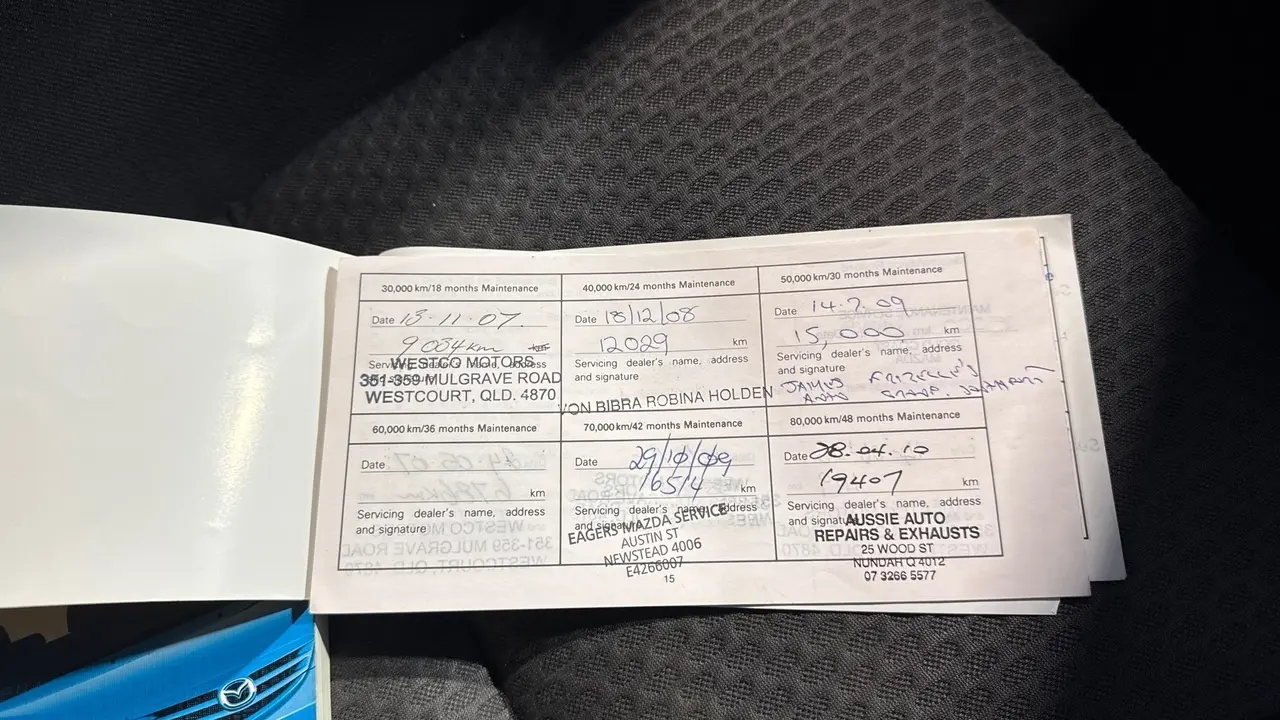 30,000 km/18 months Maintenance
Date 13·11·07.
9004km km
Servicing dealer's name, address
and signature
WESTCO MOTORS
351-359 MULGRAVE ROAD
WESTCOURT, QLD. 4870
40,000 km/24 months Maintenance
Date 18/12/08
12029 km
Servicing dealer's name, address
and signature
VON BIBRA ROBINA HOLDEN
50,000 km/30 months Maintenance
Date 14.7.09
15,000 km
Servicing dealer's name, address
and signature
JAMES FRIZELLE'S
AUTO
60,000 km/36 months Maintenance
Date
km
Servicing dealer's name, address
and signature
70,000 km/42 months Maintenance
Date 29/10/09
16514 km
Servicing dealer's name, address
and signature
EAGERS MAZDA SERVICE
AUSTIN ST
NEWSTEAD 4006
E4266007
80,000 km/48 months Maintenance
Date 28.04.10
19407 km
Servicing dealer's name, address
and signature
AUSSIE AUTO
REPAIRS & EXHAUSTS
25 WOOD ST
NUNDAH Q 4012
07 3266 5577
15